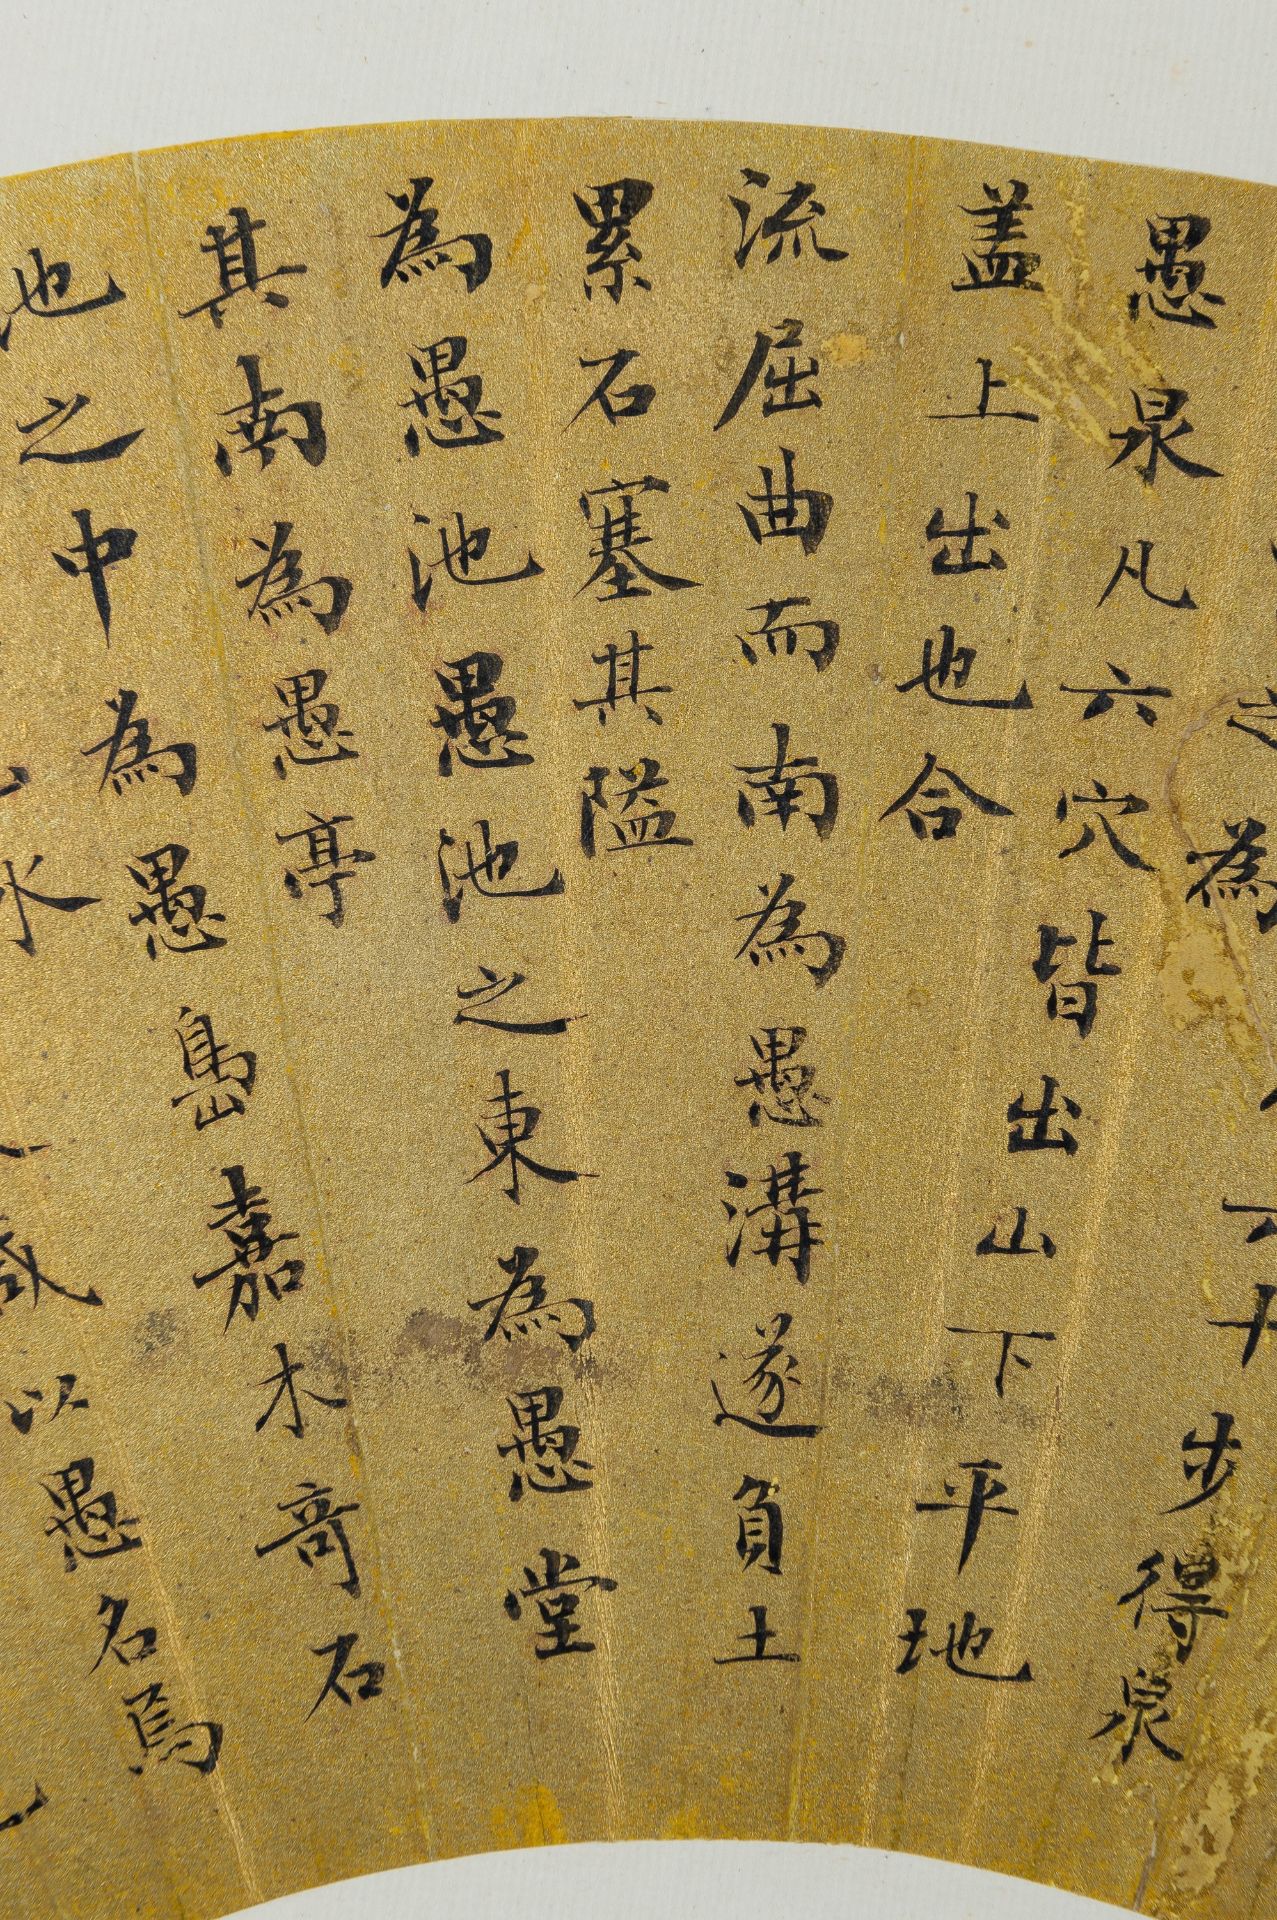 六十步得泉
之為
愚泉凡六穴皆出山下平地
盖上出也合
流屈曲而南為愚溝遂負土
累石塞其隘
為愚池愚池之東為愚堂
其南為愚亭
池之中為愚島嘉木竒石
水咸以愚名焉